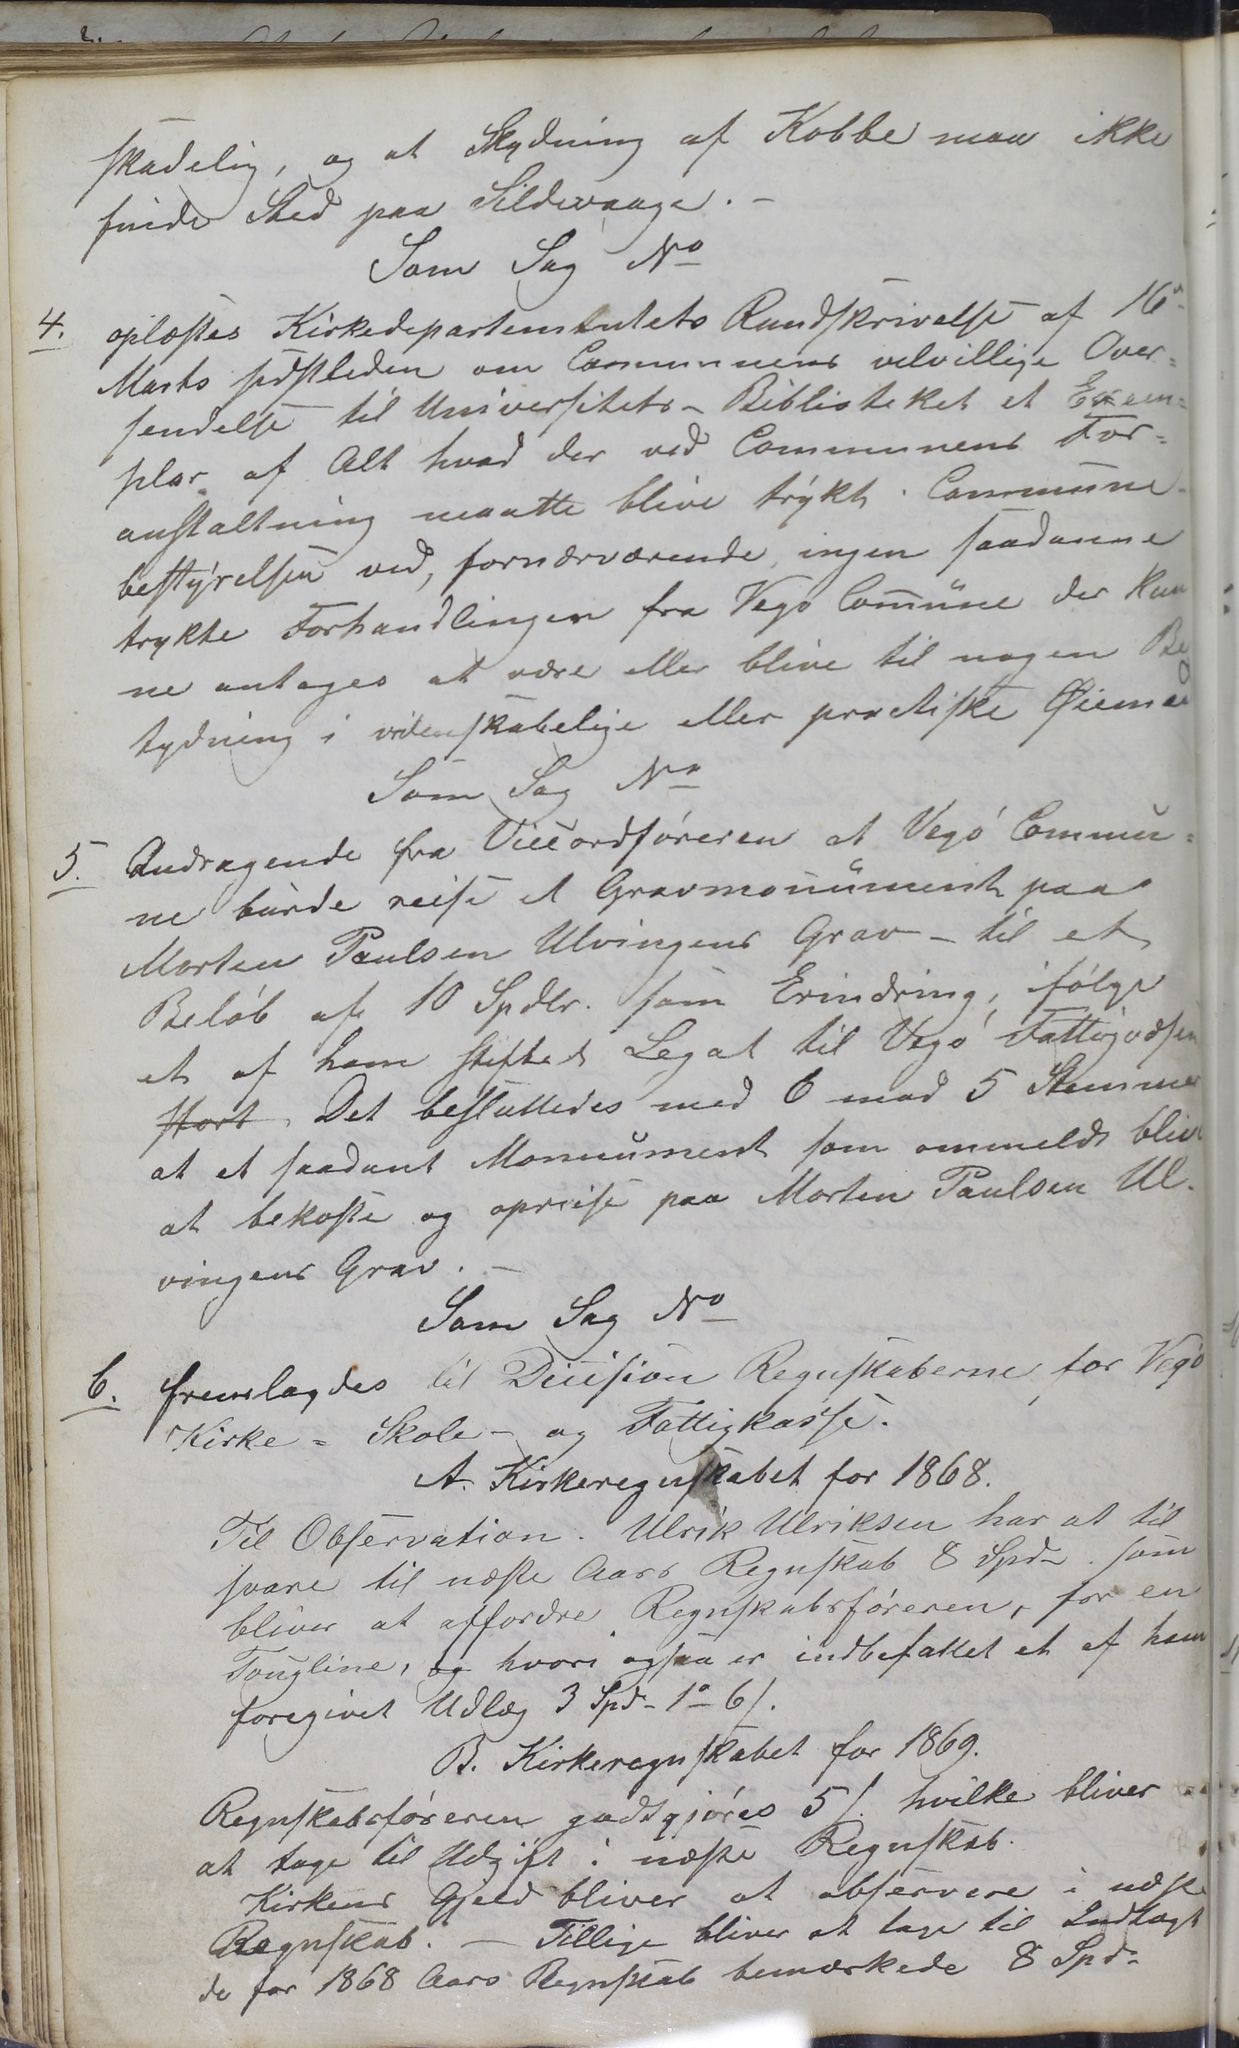 skadelig, og at Skydning af Kobbe maa ikke
finde Sted paa Sildevaage. -
Som Sag No
4. oplæstes Kirkedepartementets Rundskrivelse af 16de
Marts sidstleden om Communens velvillige Over=
sendelse til Universitets-Bibliotheket et Exem=
plar af Alt hvad der ved Communens For=
anstaltning maatte blive trykt. Commune-
bestyrelsen ved, fornærværende, ingen saadanne
trykte Forhandlinger fra Vegø Comune der kun
ne antages at være eller blive til nogen Be
tydning i videnskabelige eller practiske Øiemed
Som Sag No
5. Andragende fra Viceordføreren at Vegø Commu=
ne burde reise et Gravmonument paa
Morten Paulsen Ulvingens Grav - til et
Beløb af 10 Spdlr. som Erindring, ifølge
et af ham stiftet Legat til Vegø Fattigvæsen
stort. Det besluttedes med 6 mod 5 Stemmer
at et saadant Monnument som ommeldt bliver
at bekoste og opreise paa Morten Paulsen Ul-
vingens Grav. -
Som Sag No
6. fremlagdes til Decision Regnskaberne for Vegø
Kirke = Skole - og Fattigkasse.
A. Kirkeregnskabet for 1868.
Til Observation. Ulrik Ulriksen har at til
svare til næste Aars Regnskab 8 Spd. som
bliver at affordre Regnskabsføreren, for en
Tougline, og hvori ogsaa er indbefattet et af ham
foregivet Udlæg 3 Spd - 1 - 6 s.
B. Kirkeregnskabet for 1869.
Regnskabsføreren godtgjøres 5 s. hvilke bliver
at tage til Udgift i næste Regnskab.
Kirkens Gjeld bliver at observere i næste
Regnskab. - Tillige bliver at tage til Indtægt
de for 1868 Aars Regnskab bemærkede 8 Spd-